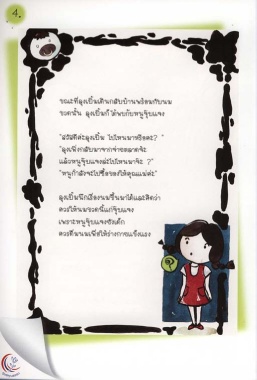 4.
ขณะที่ลุงเยิ้มเดินกลับบ้านพร้อมกับนม
ขวดนั้น ลุงเยิ้มก็ได้พบกับหนูจุ๊บแจง
"สวัสดีค่ะลุงเยิ้ม ไปไหนมาหรือคะ? "
"ลุงเพิ่งกลับมาจากจ่ายตลาดจ้ะ
แล้วหนูจุ๊บแจงล่ะไปไหนมาจ๊ะ ?"
"หนูกำลังจะไปซื้อของให้คุณแม่ค่ะ"
ลุงเยิ้มนึกเรื่องนมขึ้นมาได้และคิดว่า
ควรให้นมขวดนี้แก่จุ๊บแจง
เพราะหนูจุ๊บแจงยังเด็ก
ควรดื่มนมเพื่อให้ร่างกายแข็งแรง
?